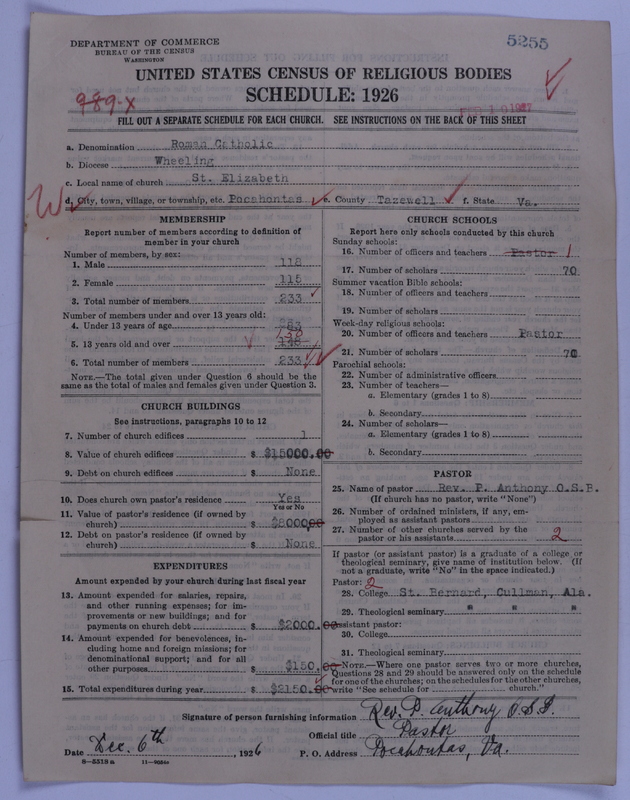 DEPARTMENT OF COMMERCE
BUREAU OF THE CENSUS
WASHINGTON
5255
UNITED STATES CENSUS OF RELIGIOUS BODIES
SCHEDULE: 1926
989-X
FILL OUT A SEPARATE SCHEDULE FOR EACH CHURCH. SEE INSTRUCTIONS ON THE BACK OF THIS SHEET
a. Denomination Roman Catholic
b. Diocese Wheeling
c. Local name of church St. Elizabeth
W
d. City, town, village, or township, etc. Pocahontas e. County Tazewell f. State Va.
MEMBERSHIP
Report number of members according to definition of
member in your church
Number of members, by sex:
1. Male 118
2. Female 115
3. Total number of members 233
Number of members under and over 13 years old:
4. Under 13 years of age
5. 13 years old and over
6. Total number of members 233
NOTE.—The total given under Question 6 should be the
same as the total of males and females given under Question 3.
CHURCH BUILDINGS
See instructions, paragraphs 10 to 12
7. Number of church edifices 1
8. Value of church edifices $ $15000.00
9. Debt on church edifices $ None
10. Does church own pastor's residence Yes
Yes or No
11. Value of pastor's residence (if owned by
church) $ $8000.00
12. Debt on pastor's residence (if owned by
church) $ None
EXPENDITURES
Amount expended by your church during last fiscal year
13. Amount expended for salaries, repairs,
and other running expenses; for im-
provements or new buildings; and for
payments on church debt $ $2000.00
14. Amount expended for benevolences, in-
cluding home and foreign missions; for
denominational support; and for all
other purposes $ $150.00
15. Total expenditures during year $ $2150.00
CHURCH SCHOOLS
Report here only schools conducted by this church
Sunday schools:
16. Number of officers and teachers Pastor 1
17. Number of scholars 70
Summer vacation Bible schools:
18. Number of officers and teachers
19. Number of scholars
Week-day religious schools:
20. Number of officers and teachers Pastor
21. Number of scholars 70
Parochial schools:
22. Number of administrative officers
23. Number of teachers—
a. Elementary (grades 1 to 8)
b. Secondary
24. Number of scholars—
a. Elementary (grades 1 to 8)
b. Secondary
PASTOR
25. Name of pastor Rev. P. Anthony O.S.B.
(If church has no pastor, write "None")
26. Number of ordained ministers, if any, em-
ployed as assistant pastors
27. Number of other churches served by the
pastor or his assistants 2
If pastor (or assistant pastor) is a graduate of a college or
theological seminary, give name of institution below. (If
not a graduate, write "No" in the space indicated.)
Pastor: 2
28. College St. Bernard, Cullman, Ala.
29. Theological seminary " " "
Assistant pastor:
30. College
31. Theological seminary
NOTE.—Where one pastor serves two or more churches,
Questions 28 and 29 should be answered only on the schedule
for one of the churches; on the schedules for the other churches,
write "See schedule for church."
Signature of person furnishing information Rev. P. Anthony O.S.B.
Official title Pastor
Date Dec. 6th, 1926 P. O. Address Pocahontas, Va.